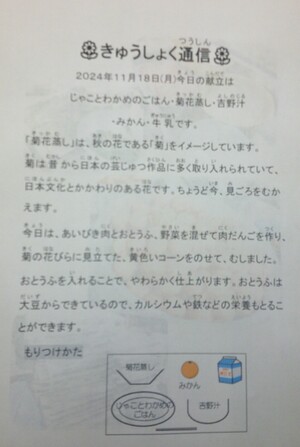 きゅうしょく通信
2024年11月18日(月)今日の献立は
じゃことわかめのごはん・菊花蒸し・吉野汁
・みかん・牛乳です。
「菊花蒸し」は、秋の花である「菊」をイメージしています。
菊は昔から日本の芸じゅつ作品に多く取り入れられていて、
日本文化とかかわりのある花です。ちょうど今、見ごろをむか
えます。
今日は、あいびき肉とおとうふ、野菜を混ぜて肉だんごを作り、
菊の花びらに見立てた、黄色いコーンをのせて、むしました。
おとうふを入れることで、やわらかく仕上がります。おとうふは
大豆からできているので、カルシウムや鉄などの栄養もとるこ
とができます。
もりつけかた
菊花蒸し
みかん
じゃことわかめの
ごはん
吉野汁